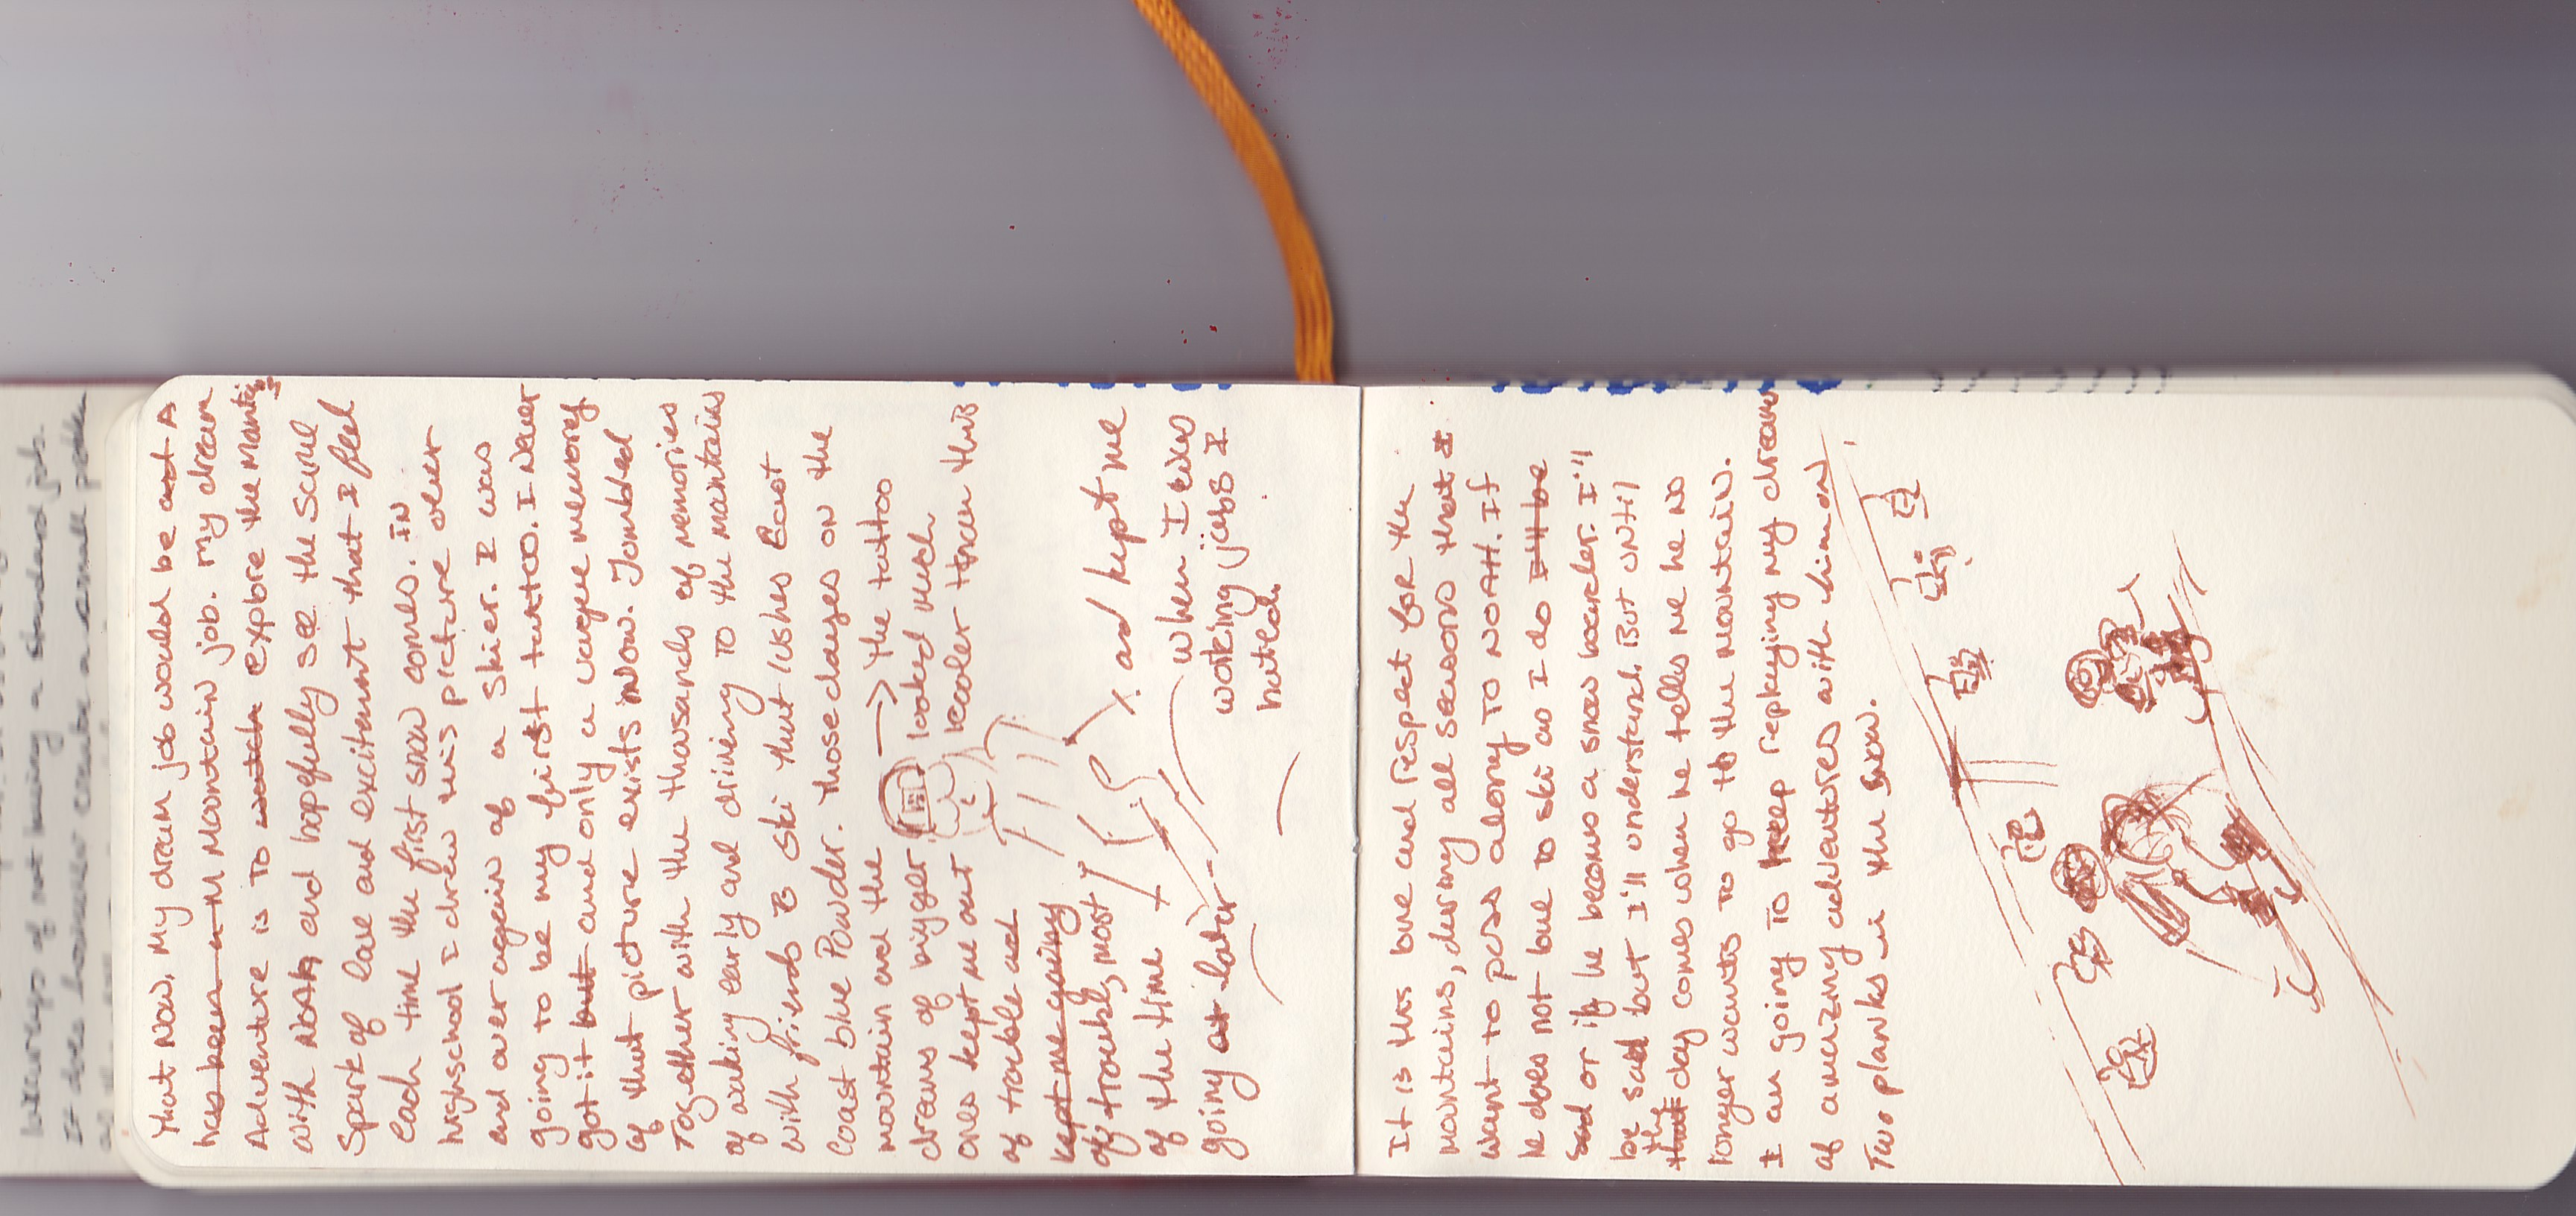 weary of not having a standard job.
It does however create a small
That now. My dream job would be not A
has been a M Mountain job. My dream
Adventure is TO watch explore the Mountains
with NOAH and hopefully see the same
Spark of love and excitement that I feel
Each time the first snow comes. IN
highschool I drew this picture over
and over again of a skier. I was
going to be my first tattoo. I Never
got it but and only a vague memory
of that picture exists Now. Tombled
Together with the thousands of memories
of waking early and driving TO the mountains
with friends to ski that lushes East
Coast blue Powder. Those dayes on the
mountain and the --> The tattoo
dreams of bigger looked much
ones kept me out kooler than this
of trouble and
kept me going
of trouble, most
of the time + and kept me
going at later. when I was
working jobs I
hated.
It is this love and respect for the
mountains, during all seasons that I
want to pass along TO NOAH. If
he does not love to ski as I do I'll be
sad or if he becomes a snow boarder. I'll
be sad but I'll understand. But until
that the day comes when he tells me he no
longer wants to go to the mountain.
I am going TO keep replaying my dream
of amazing adventures with him on
Two planks in the snow.